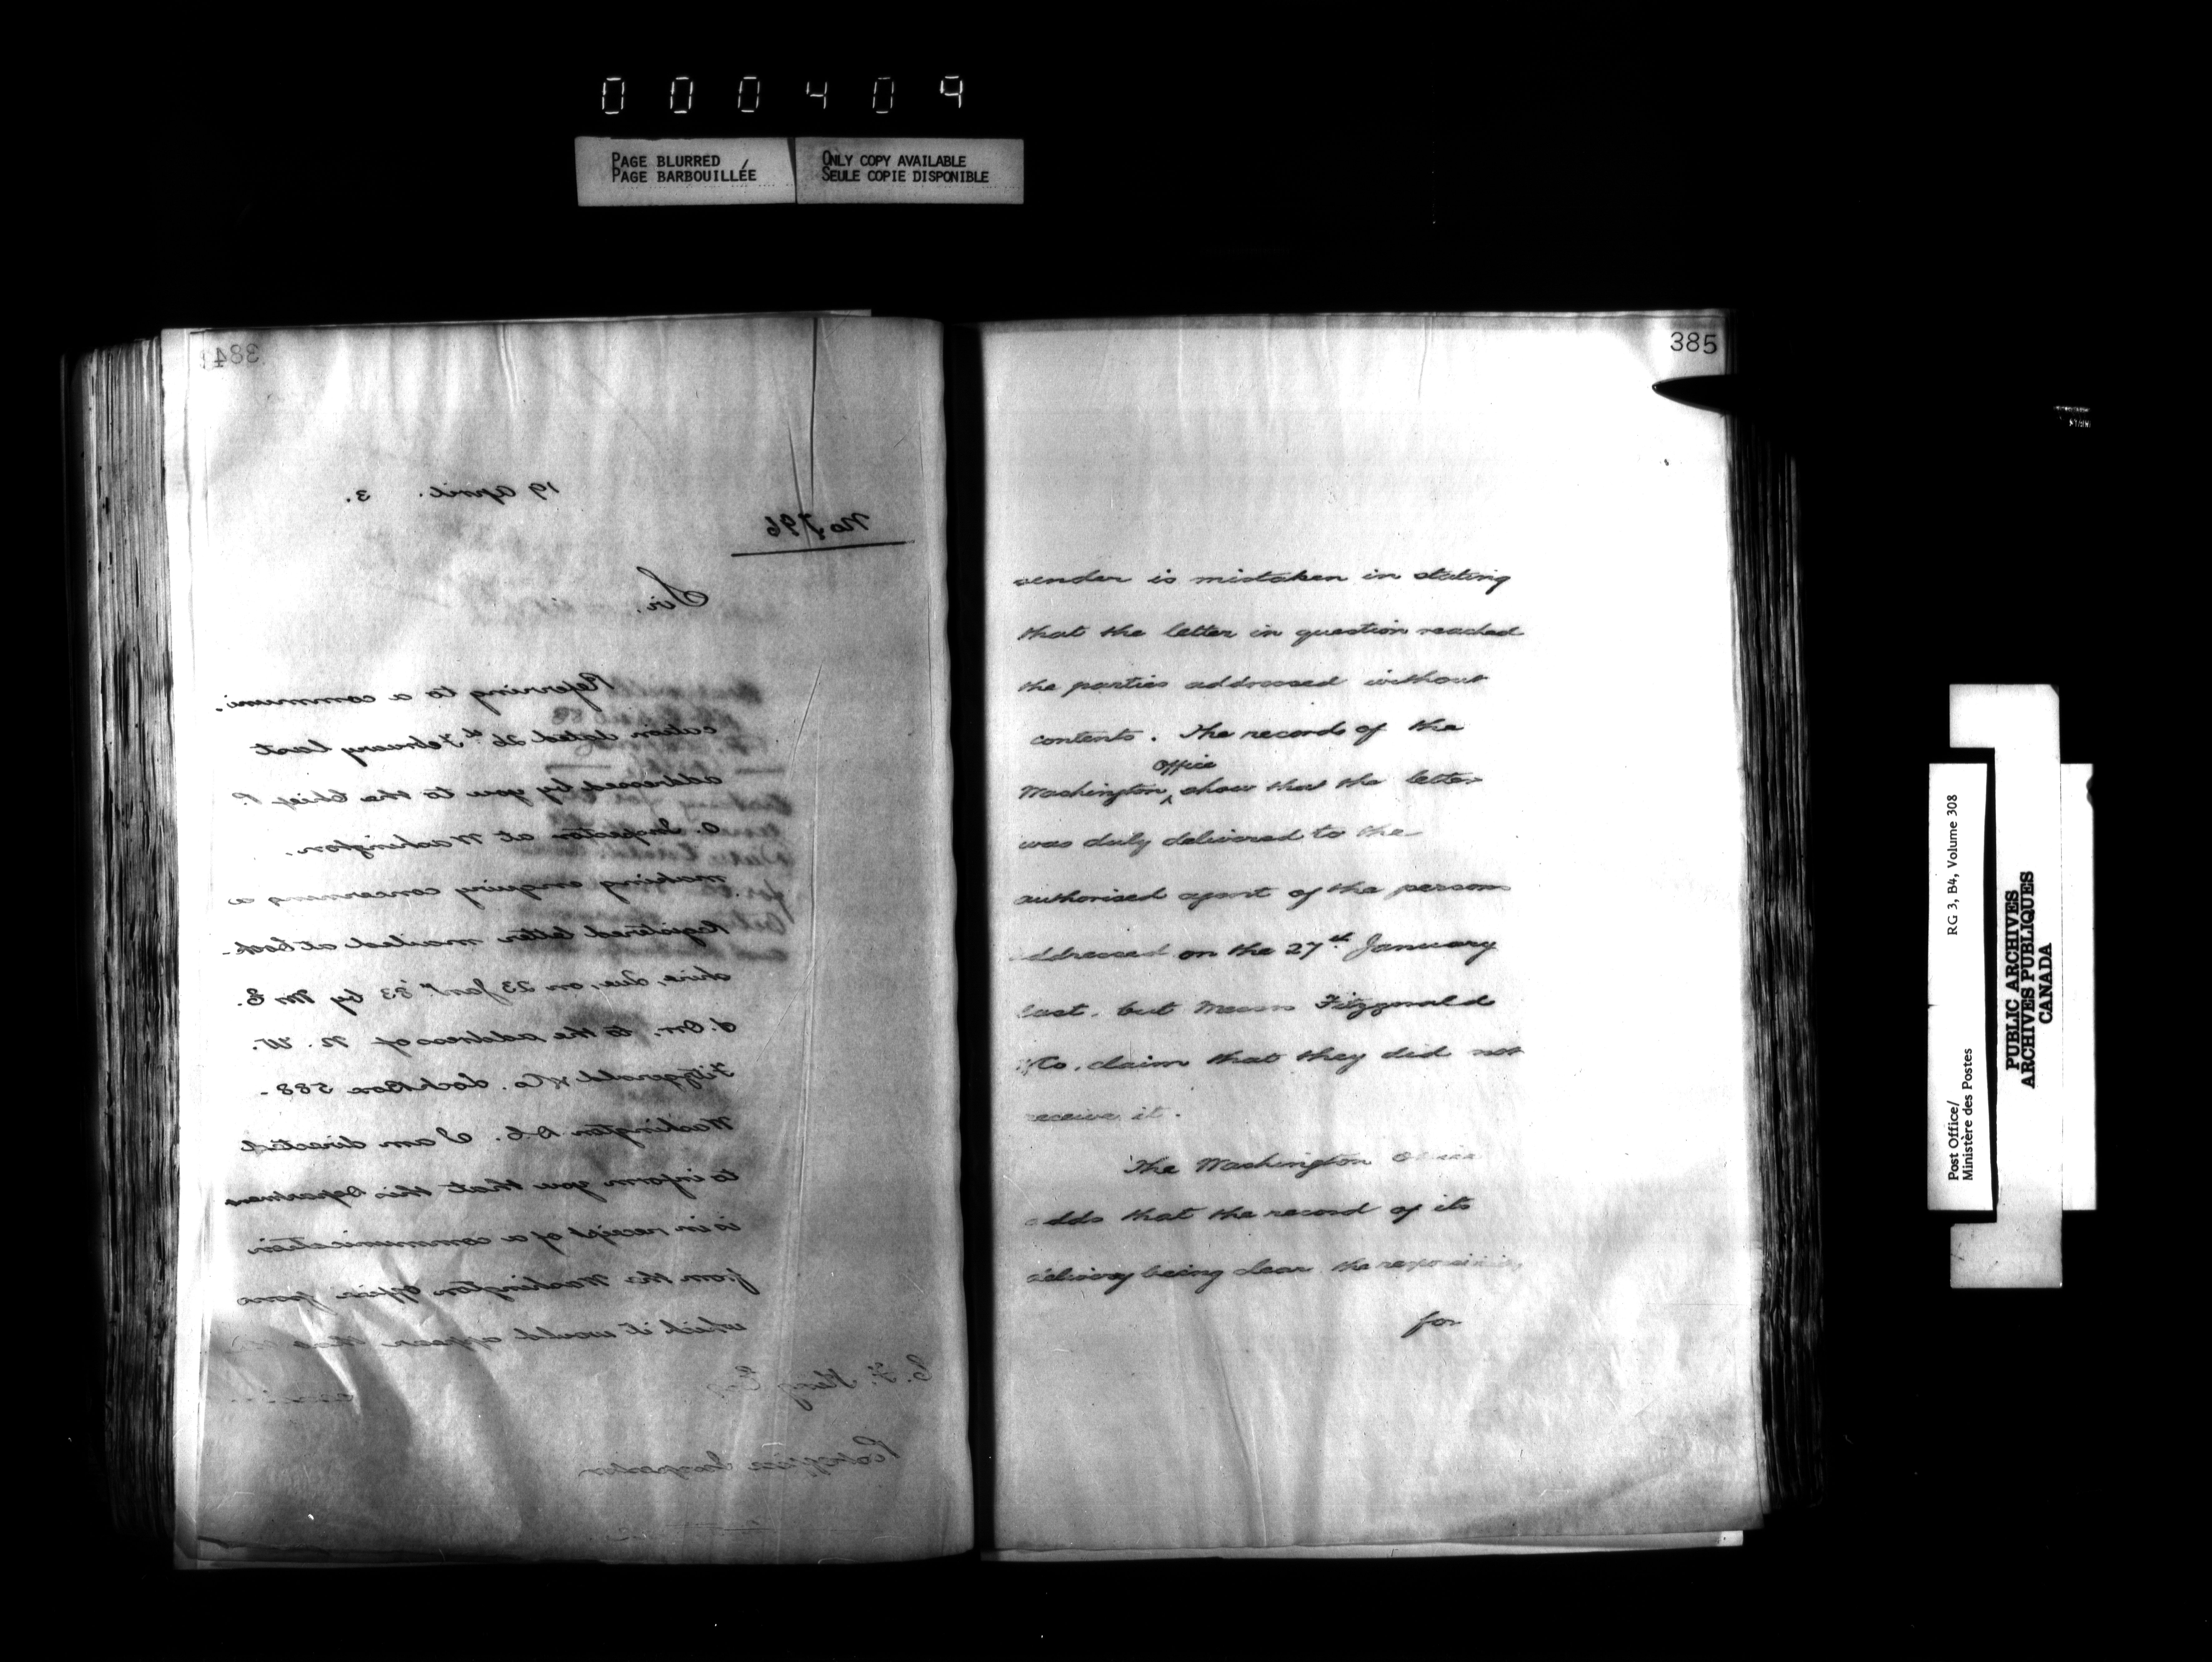 000409
PAGE BLURRED
PAGE BARBOUILLÉE
ONLY COPY AVAILABLE
SEULE COPIE DISPONIBLE
384
19 April. 3.
No 796
Sir,
Referring to a communi-
cation dated 26th February last
addressed by you to the Chief P.
O. Inspector at Washington,
making enquiry concerning a
Registered letter mailed at Cook-
shire, Que, on 23 Jany. 83 by M E.
S. Orr, to the address of N. W.
Fitzgerald & Co. Lock Box 588 -
Washington D.C. I am directed
to inform you that this Department
is in receipt of a communication
from the Washington Office from
which it would appear that the
E. F. King Esq.
Postoffice Inspector
385
sender is mistaken in stating
that the letter in question reached
the parties addressed without
contents. The records of the
Washington Office show that the letter
was duly delivered to the
authorised agent of the persons
addressed on the 27th January
last, but Messrs Fitzgerald
& Co. claim that they did not
receive it.
The Washington Office
adds that the record of its
delivery being clear the responsibility
for
Post Office/
Ministère des Postes
RG 3, B4, Volume 308
PUBLIC ARCHIVES
ARCHIVES PUBLIQUES
CANADA